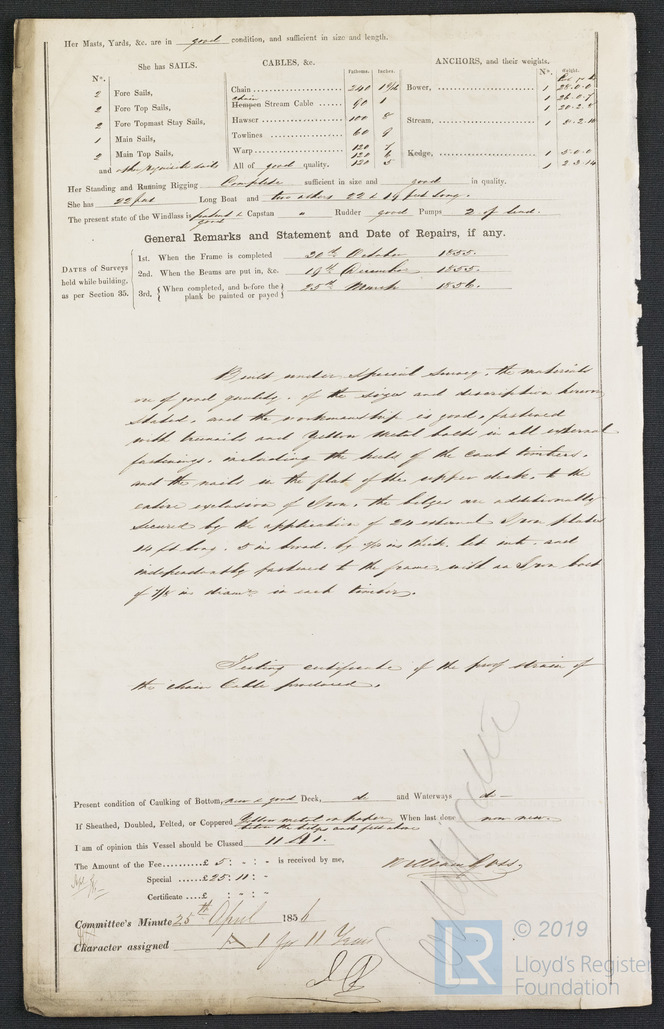 Her Masts, Yards, &c. are in good condition, and sufficient in size and length.
She has SAILS. CABLES, &c. Fathoms. Inches. ANCHORS, and their weights. N°. Weight.
N°.
2 Fore Sails, Chain 240 Bower, 1 28.0.0
2 Fore Top Sails, chain Hempen Stream Cable 90 1 1
2 Fore Topmast Stay Sails, Hawser 100 8 1 20.2.8
1 Main Sails, Towlines 60 Stream, 1
2 Main Top Sails, Warp 120 Kedge, 1 5.0.0
120 6
and other requisite sails All of good quality. 120 5 1 2.3.14
Her Standing and Running Rigging Complete sufficient in size and good in quality.
She has 22 feet Long Boat and two others 22 & feet long.
The present state of the Windlass is patent & good Capstan " Rudder good Pumps 2 of lead.
General Remarks and Statement and Date of Repairs, if any.
DATES of Surveys held while building, as per Section 35.
1st. When the Frame is completed 20th October 1855.
2nd. When the Beams are put in, &c. 19th December 1855.
3rd, When completed, and before the plank be painted or payed 25th March 1856.
Built under Special Survey, the materials
are of good quality, of the sizes and description herein
stated, and the workmanship is good, fastened
with treenails and Yellow Metal bolts in all external
fastenings, including the heels of the cant timbers,
and the nails in the flat of the upper deck, to the
entire exclusion of Iron, the bilges are additionally
secured by the application of 24 external Iron plates
14 ft long, 5 ins broad, by ins thick, let into, and
independently fastened to the frame, with an Iron bolt
of 7/8 ins diamr in each timber.
Testing certificate of the proof strain of
the chain Cable produced.
Present condition of Caulking of Bottom, new & good Deck, do and Waterways do
If Sheathed, Doubled, Felted, or Coppered Yellow metal on When last done now new
the bilges and felt above
I am of opinion this Vessel should be Classed 11 A 1.
The Amount of the Fee £ 5 : - : - is received by me, William
Special £ 25 : 11 : -
Certificate £ : - : -
Committee's Minute 25th April 1856
Character assigned A 1 for 11 Years
© 2019
LR Lloyd's Register
Foundation